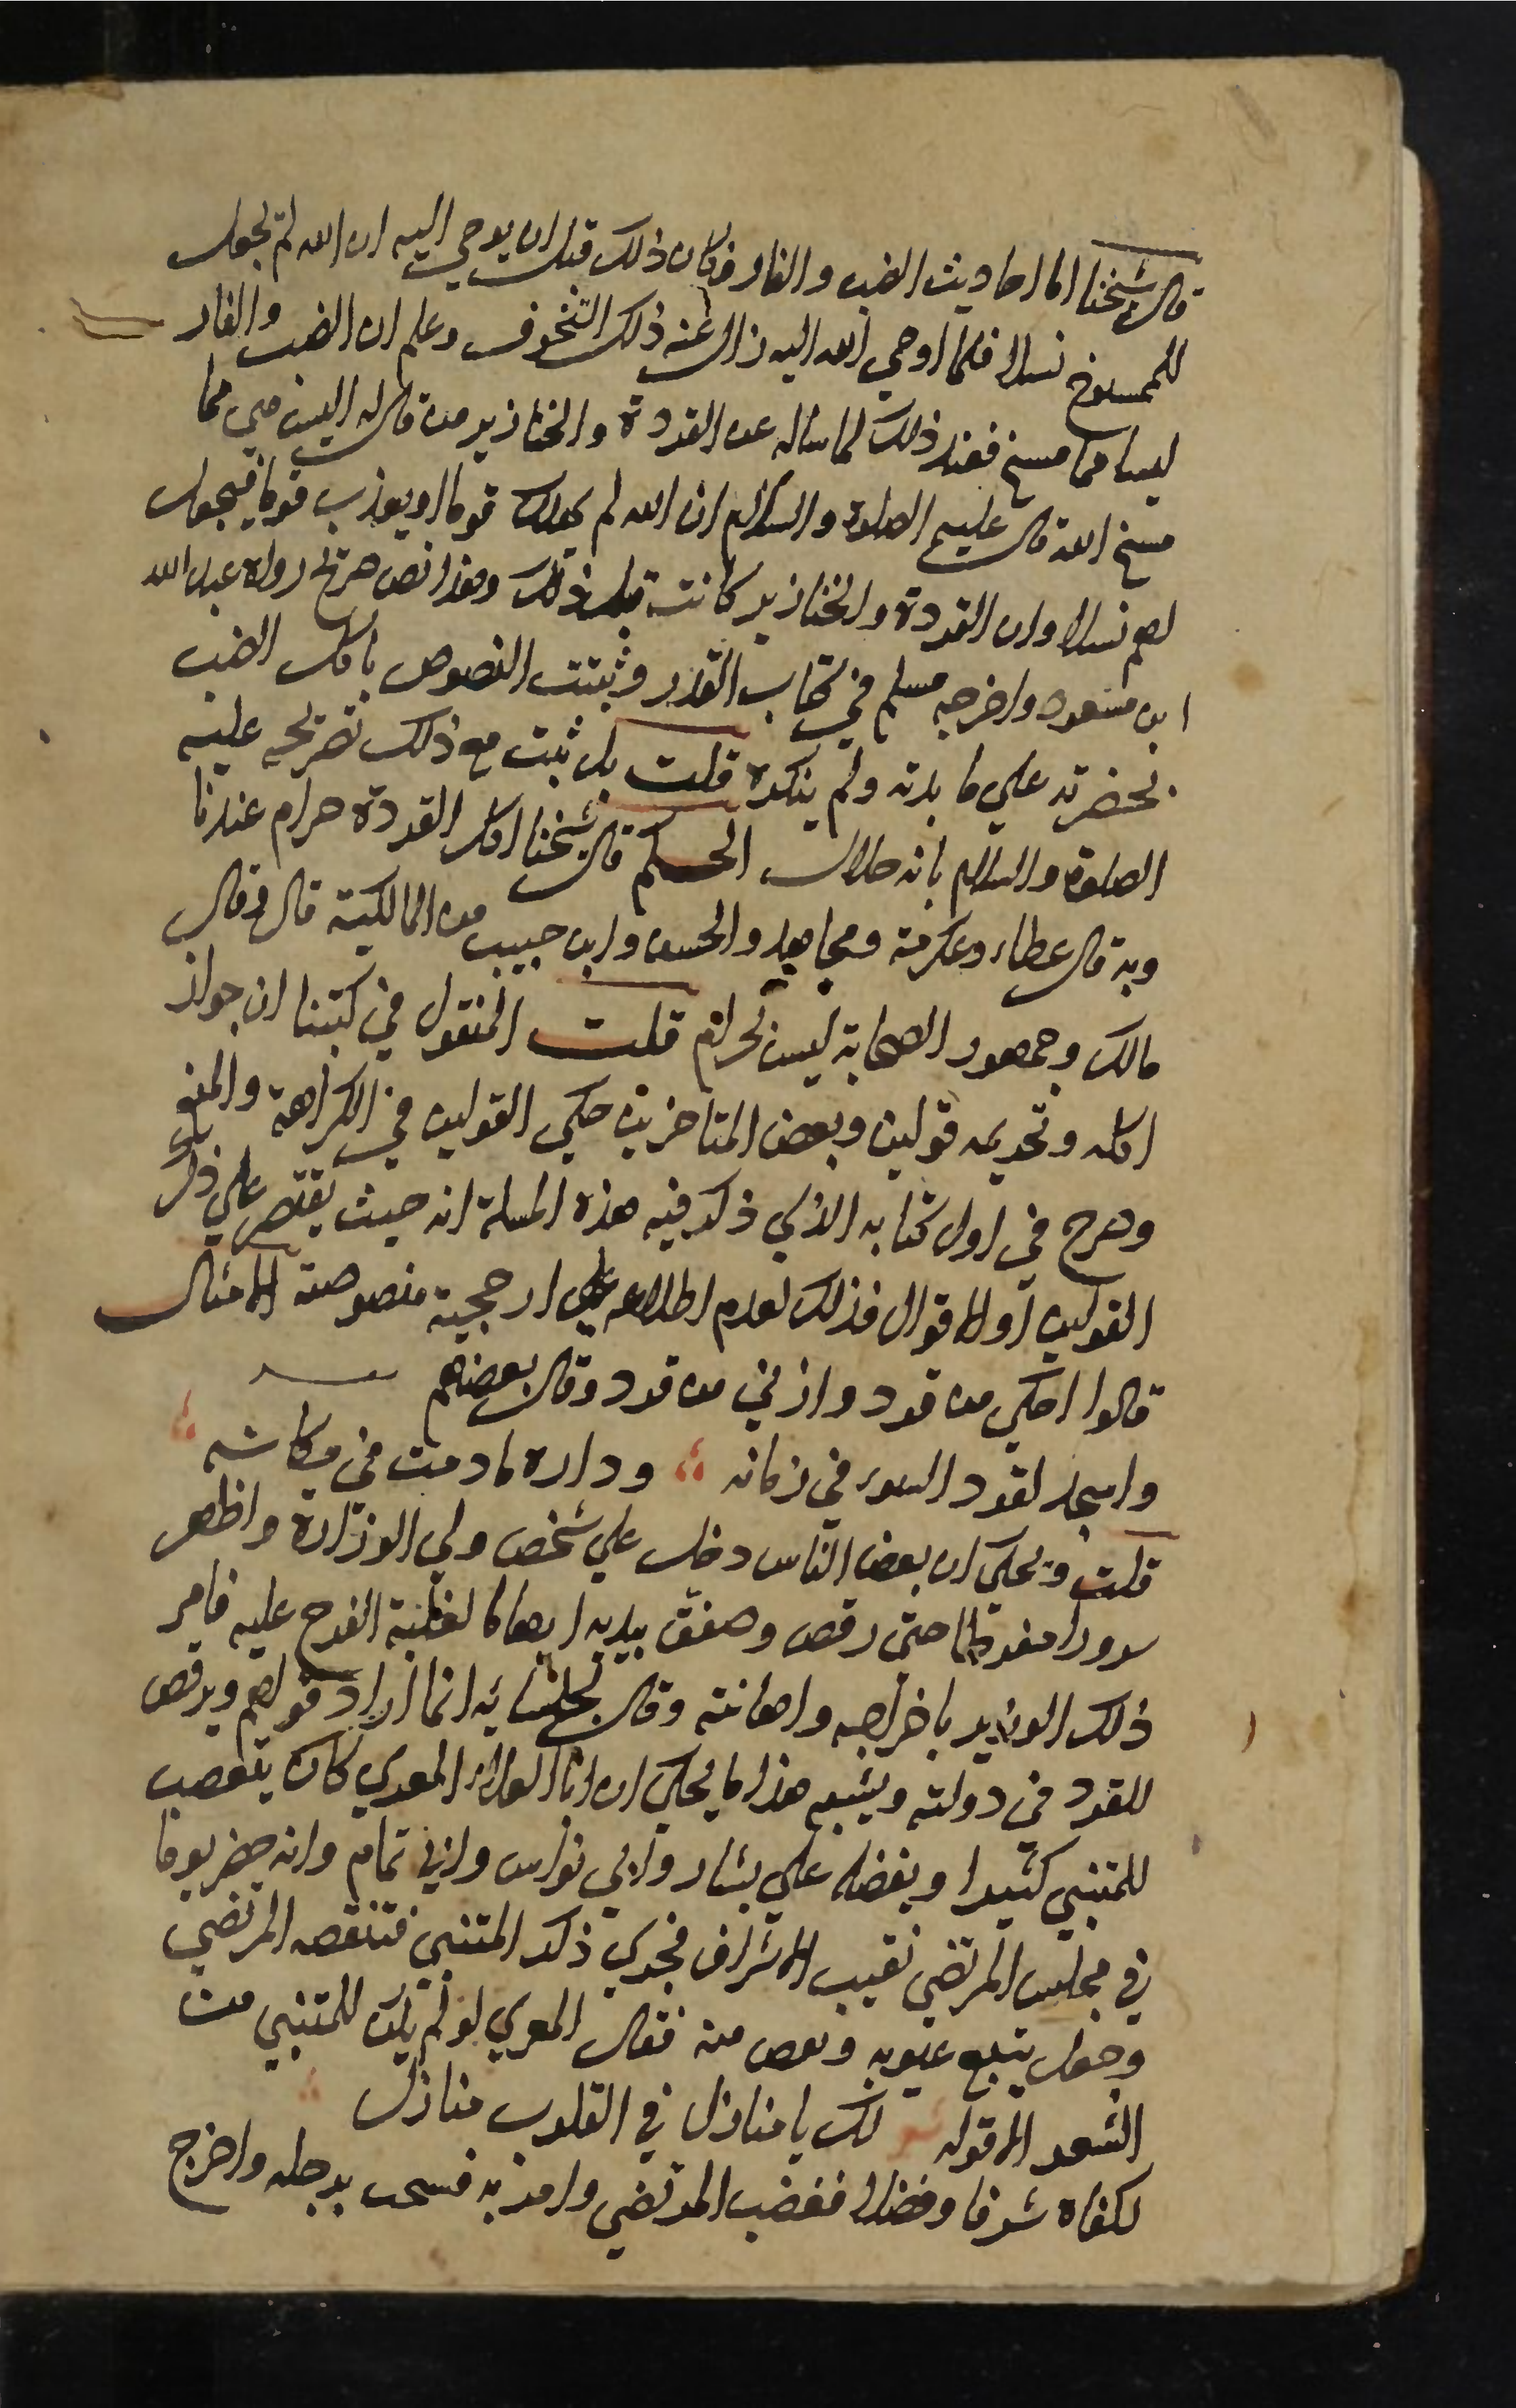 قال شيخنا اما احاديث الضب والفار فكان ذلك قبل ان يوحي اليه ان الله لم يجعل
للممسوخ نسلا فلما اوحي الله اليه زال عنه ذلك التخوف وعلم ان الضب والفار
ليسا مما مسخ فعند ذلك لما ساله عن القردة والخنازير من قال له اليست هي مما
مسخ الله قال عليه الصلوة والسلام ان الله لم يهلك قوما او يعذب قوما فيجعل
لهم نسلا وان القردة والخنازير كانت قبل ذلك وهذا نص صريح رواه عبد الله
ابن مسعود واخرجه مسلم في كتاب القدر وثبتت النصوص باكل الضب
بحضرته علي مايدته ولم ينكره قلت بل ثبت مع ذلك تصريحه عليه
الصلوة والسلام بانه حلال الحكم قال شيخنا اكل القردة حرام عندنا
وبه قال عطاء وعكرمة ومجاهد والحسن وابن حبيب من المالكية قال وقال
مالك وجمهور الصحابة ليس بحرام قلت المنقول في كتبنا ان جواز
اكله وتحريمه قولين وبعض المتاخرين حكي القولين في الكراهة والمنع
وصرح في اول كتابه الذي ذكر فيه هذه المسلة انه حيث يقتصر علي ذكر
القولين او الاقوال فذلك لعدم اطلاعه علي ارجحية منصوصة الامثال
قالوا احكي من قرد وازني من قرد وقال بعضهم
واسجد لقرد السوء في زمانه ؛ وداره مادمت في مكانه
قلت ويحكي ان بعض الناس دخل علي شخص ولي الوزارة واظهر
سرورا مفرطا حتي رقص وصفق بيديه ايهاما لغلبة الفرح عليه فامر
ذلك الوزير باخراجه واهانته وقال لجلسايه انما اراد قولهم ويرقص
للقرد في دولته ويشبه هذا ما يحكي ان ابا العلاء المعري كان يتعصب
للمتنبي كثيرا ويفضله علي بشار وابي نواس وابي تمام وانه حضر يوما
في مجلس المرتضي نقيب الاشراف فجري ذكر المتنبي فتنقصه المرتضي
وجعل يتبع عيوبه وبعض منه فقال المعري لو لم يكن للمتنبي من
الشعر الا قوله لك يا منازل في القلوب منازل
لكفاه شرفا وفضلا فغضب المرتضي وامر به فسحب برجله واخرج